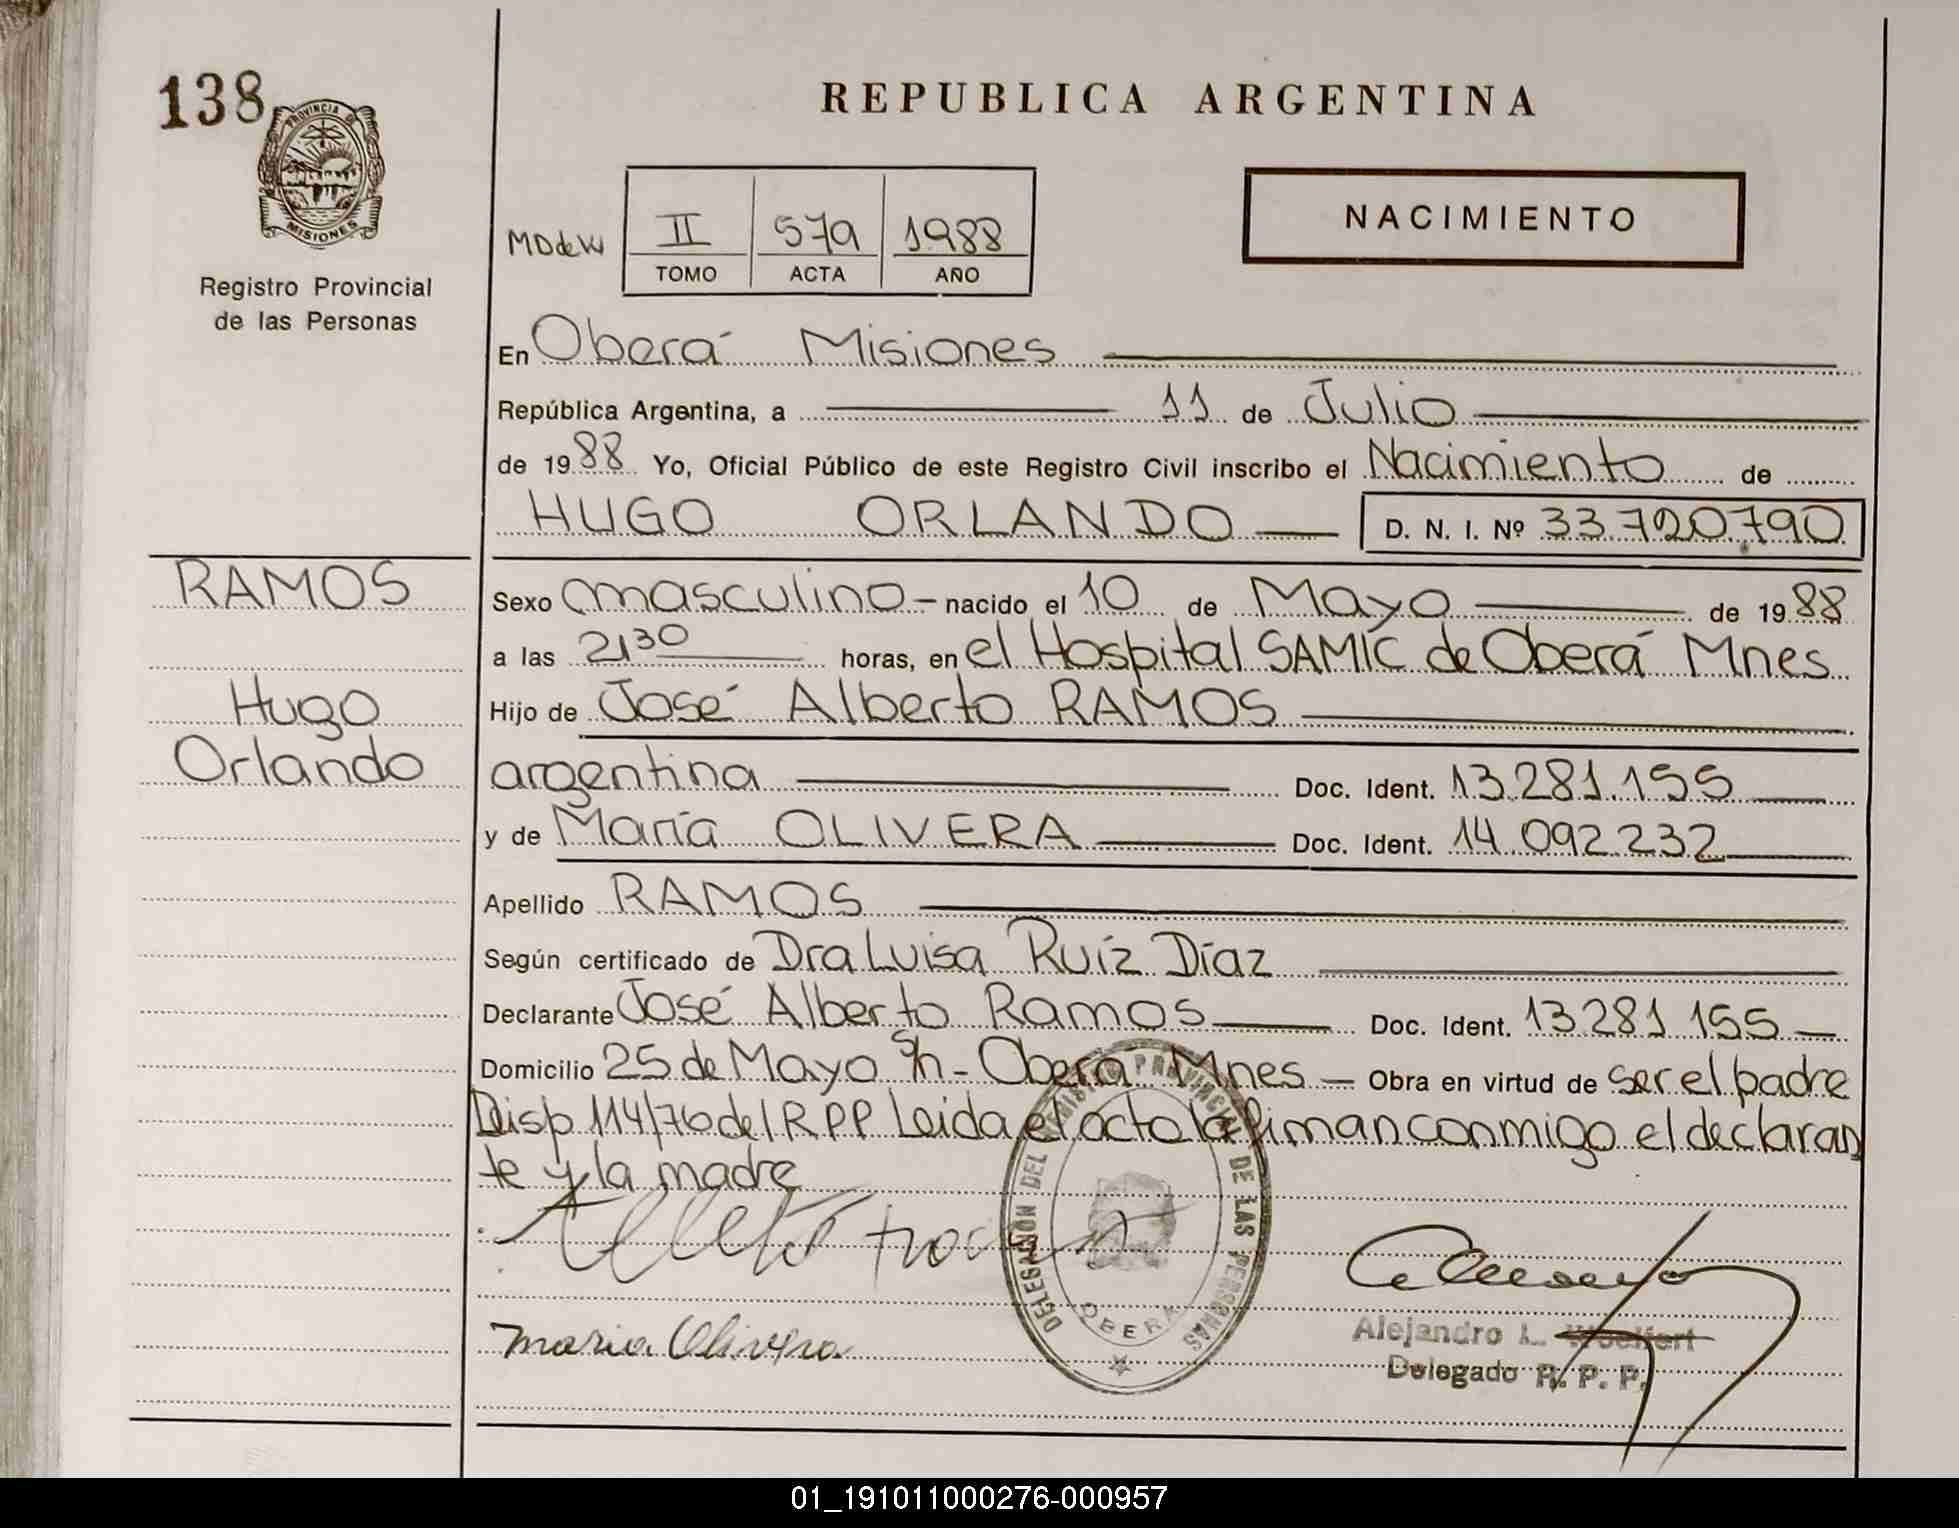 138
PROVINCIA DE
MISIONES
Registro Provincial
de las Personas
REPUBLICA ARGENTINA
NACIMIENTO
MDdeW
II 579 1988
TOMO ACTA AÑO
En Oberá Misiones
República Argentina, a 11 de Julio
de 1988 Yo, Oficial Público de este Registro Civil inscribo el Nacimiento de
HUGO ORLANDO D. N. I. Nº 33.720.790
RAMOS
Hugo
Orlando
Sexo masculino - nacido el 10 de Mayo de 1988
a las 2130 horas, en el Hospital SAMIC de Oberá Mnes
Hijo de José Alberto RAMOS
argentina Doc. Ident. 13.281.155
y de María OLIVERA Doc. Ident. 14.092.232
Apellido RAMOS
Según certificado de Dra Luisa Ruíz Díaz
Declarante José Alberto Ramos Doc. Ident. 13.281.155
Domicilio 25 de Mayo s/n - Oberá Mnes - Obra en virtud de ser el padre
Disp 114/76 del R P P Leida el acta la firman conmigo el declaran
te y la madre
DELEGACIÓN DEL PROVINCIAL DE LAS PERSONAS
OBERA
Maria Olivera
Alejandro L. Woelfert
Delegado R. P. P.
01_191011000276-000957